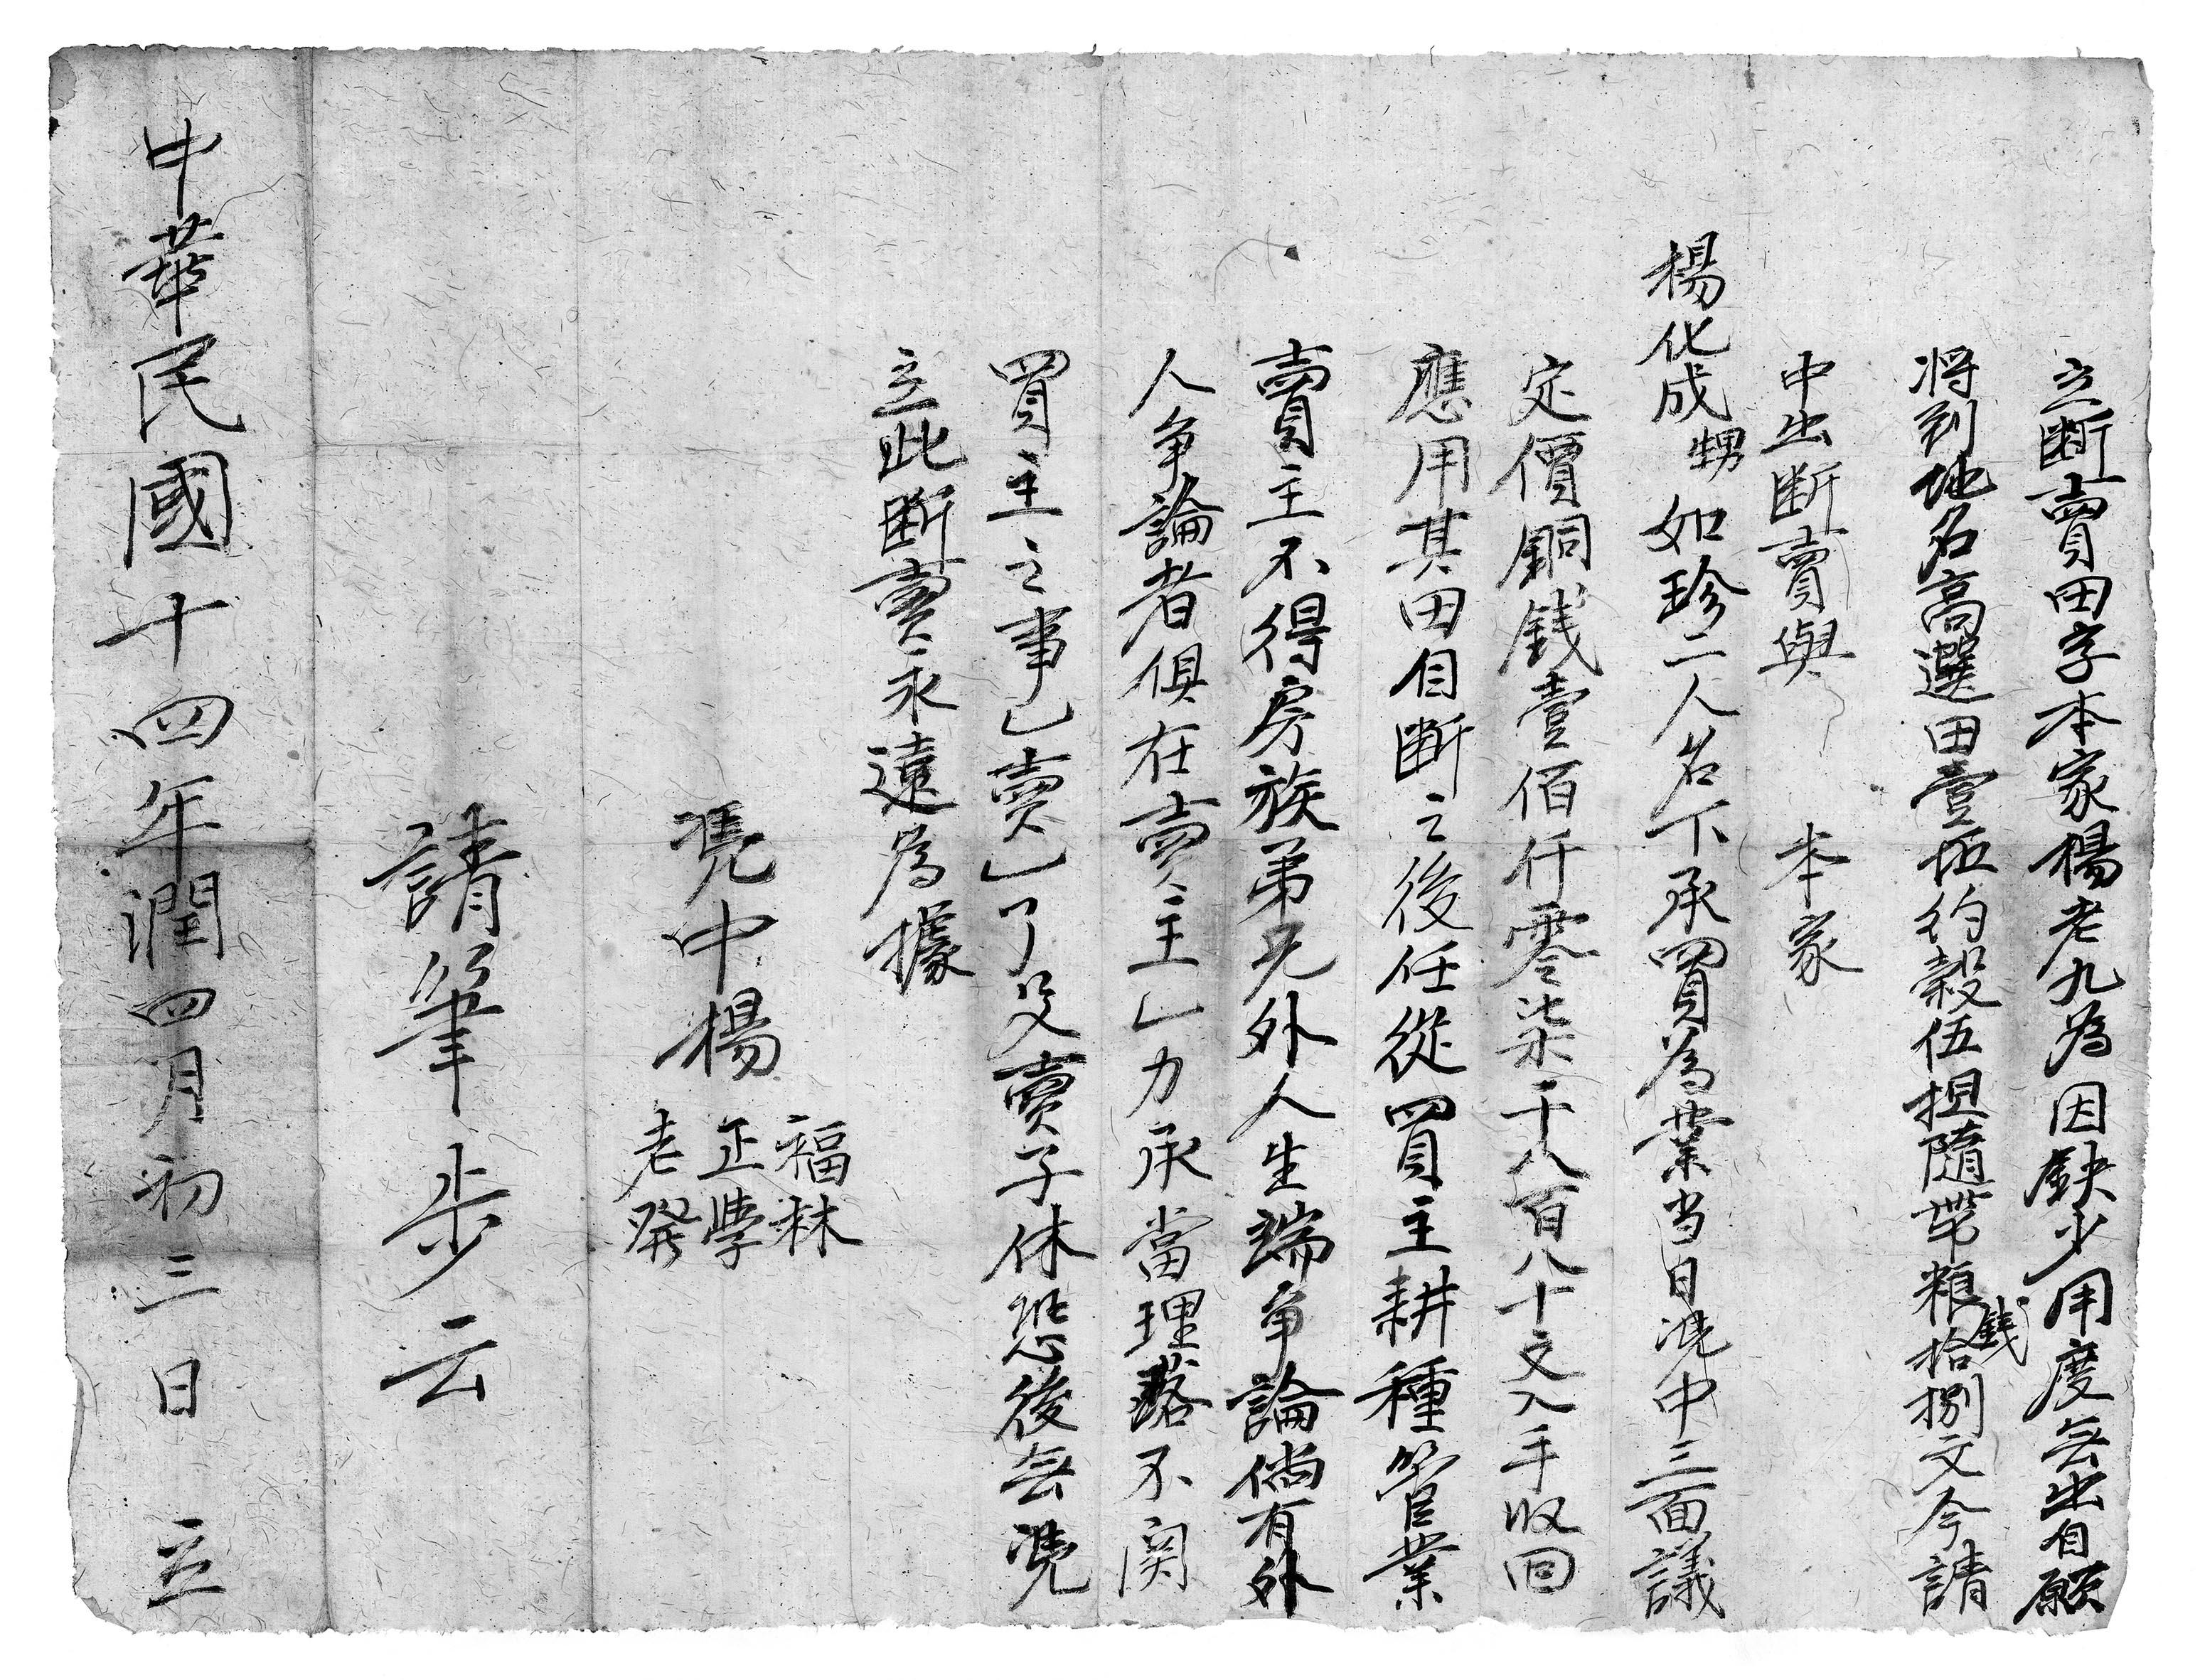 立断賣田字本家楊老九為因缺少用度無出自願
將到地名高選田壹坵約穀伍担隨帶粮錢拾捌文今請
中出断賣與 本家
楊化成甥如珍二人名下承買為業当日凴中三面議
定價銅錢壹佰仟零柒千八百八十文入手收回
應用其田自断之後任從買主耕種管業
賣主不得房族弟兄外人生端争論倘有外
人争論者俱在賣主乚力承當理落不関
買主之事乚賣乚了父賣子休恐後無凴
立此断賣永遠為據
凴中楊
福林
正學
老發
請筆步云
中華民國十四年潤四月初三日 立